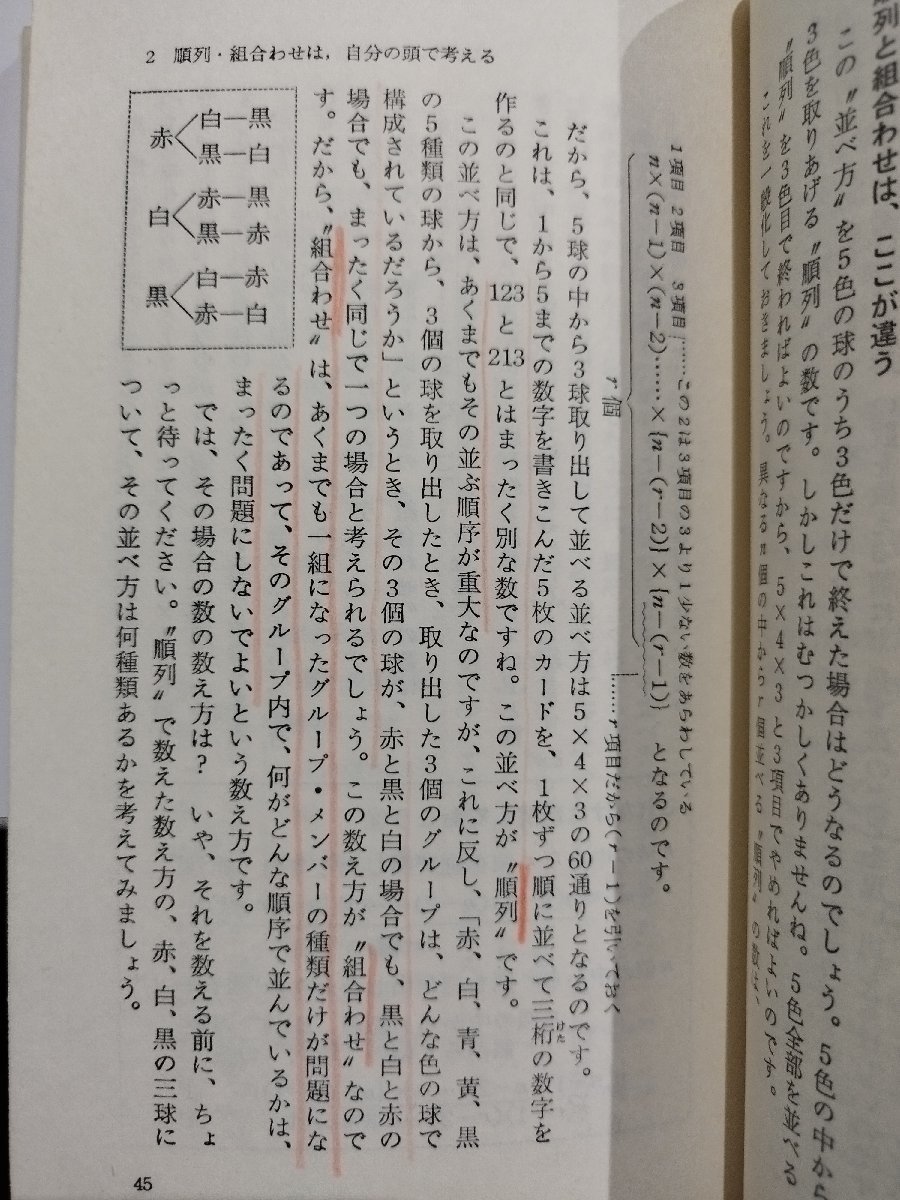 順列と組合わせは、ここが違う
この〝並べ方〟を5色の球のうち3色だけで終えた場合はどうなるのでしょう。5色の中から
3色を取りあげる〝順列〟の数です。しかしこれはむつかしくありませんね。5色全部を並べる
〝順列〟を3色目で終わればよいのですから、5×4×3と3項目でやめればよいのです。
これを一般化しておきましょう。異なるn個の中からr個並べる〝順列〟の数は、
1項目 2項目 3項目……この2は3項目の3より1少ない数をあらわしている
n×(n−1)×(n−2)……×{n−(r−2)}×{n−(r−1)} となるのです。
r個
……r項目だから(r−1)を引いておく
だから、5球の中から3球取り出して並べる並べ方は5×4×3の60通りとなるのです。
これは、1から5までの数字を書きこんだ5枚のカードを、1枚ずつ順に並べて三桁の数字を
けた
作るのと同じで、123と213とはまったく別な数ですね。この並べ方が〝順列〟です。
この並べ方は、あくまでもその並ぶ順序が重大なのですが、これに反し、「赤、白、青、黄、黒
の5種類の球から、3個の球を取り出したとき、取り出した3個のグループは、どんな色の球で
構成されているだろうか」というとき、その3個の球が、赤と黒と白の場合でも、黒と白と赤の
場合でも、まったく同じで一つの場合と考えられるでしょう。この数え方が〝組合わせ〟なので
す。だから、〝組合わせ〟は、あくまでも一組になったグループ・メンバーの種類だけが問題にな
るのであって、そのグループ内で、何がどんな順序で並んでいるかは、
まったく問題にしないでよいという数え方です。
では、その場合の数の数え方は? いや、それを数える前に、ちょ
っと待ってください。〝順列〟で数えた数え方の、赤、白、黒の三球に
ついて、その並べ方は何種類あるかを考えてみましょう。
2 順列・組合わせは、自分の頭で考える
赤 白—黒
黒—白
白 赤—黒
黒—赤
黒 白—赤
赤—白
45